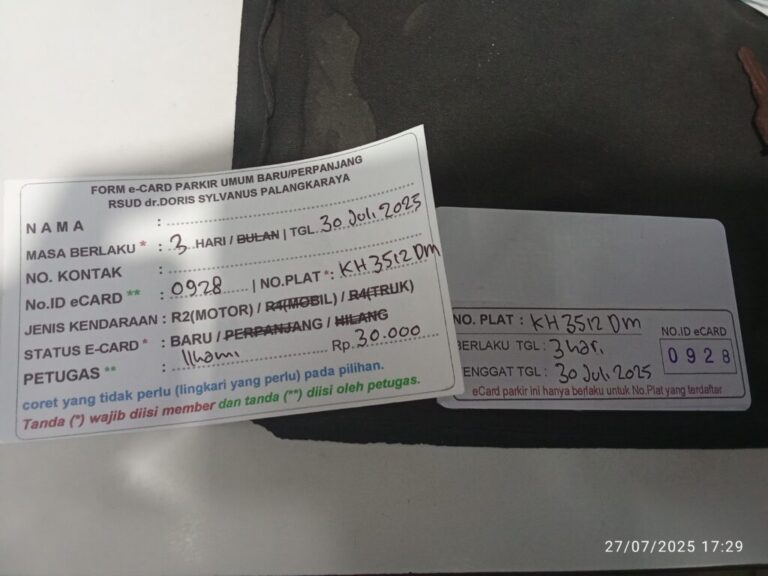 FORM e-CARD PARKIR UMUM BARU/PERPANJANG
RSUD dr.DORIS SYLVANUS PALANGKARAYA
NAMA :
MASA BERLAKU * : 3 HARI / BULAN | TGL. 30 Juli 2025
NO. KONTAK :
No.ID eCARD ** : 0928 | NO.PLAT * : KH 3512 DM
JENIS KENDARAAN : R2(MOTOR) / R4(MOBIL) / R4(TRUK)
STATUS E-CARD * : BARU / PERPANJANG / HILANG
PETUGAS ** : Ilhami Rp. 30.000
coret yang tidak perlu (lingkari yang perlu) pada pilihan.
Tanda (*) wajib diisi member dan tanda (**) diisi oleh petugas.
NO. PLAT : KH 3512 DM
BERLAKU TGL : 3 hari
TENGGAT TGL : 30 Juli 2025
NO.ID eCARD
0928
eCard parkir ini hanya berlaku untuk No.Plat yang terdaftar
27/07/2025 17:29